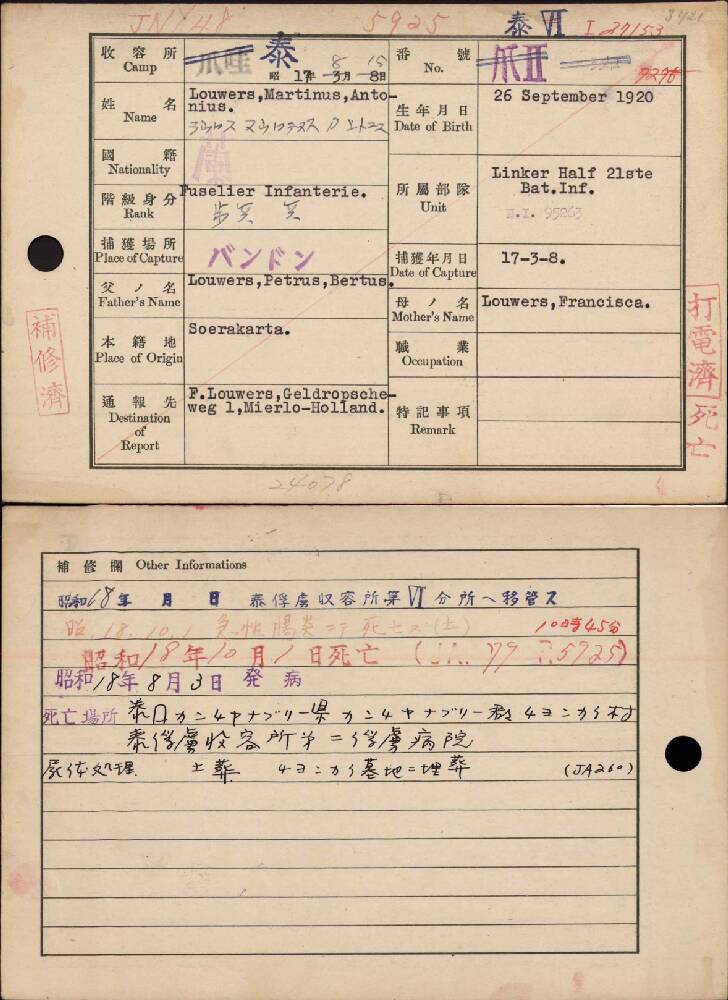 JN 148 5925 泰 VI I 27153
収容所 Camp 爪哇 泰 昭17年 8月 15日
番號 No. 爪II
姓名 Name Louwers,Martinus,Anto-
nius.
生年月日 Date of Birth 26 September 1920
國籍 Nationality 蘭
階級身分 Rank Fuselier Infanterie.
歩兵 兵
所屬部隊 Unit Linker Half 21ste
Bat.Inf.
N.I. 95263
捕獲場所 Place of Capture バンドン
捕獲年月日 Date of Capture 17-3-8.
父ノ名 Father's Name Louwers,Petrus,Bertus.
母ノ名 Mother's Name Louwers,Francisca.
本籍地 Place of Origin Soerakarta.
職業 Occupation
通報先 Destination of Report F.Louwers,Geldropsche-
weg 1,Mierlo-Holland.
特記事項 Remark
補修済
打電濟 死亡
24078
補修欄 Other Informations
昭和18年 月 日 泰俘虜収容所第VI分所ヘ移管ス
昭.18.10.1 急性腸炎ニテ死亡ス(土) 10時45分
昭和18年10月1日死亡 (JA. 79 P.5925)
昭和18年8月3日 発病
死亡場所 泰国カンチヤナブリー県カンチヤナブリー郡チヨンカイ村
泰俘虜收容所第二俘虜病院
屍体処理 土葬 チヨンカイ墓地ニ埋葬 (JA260)